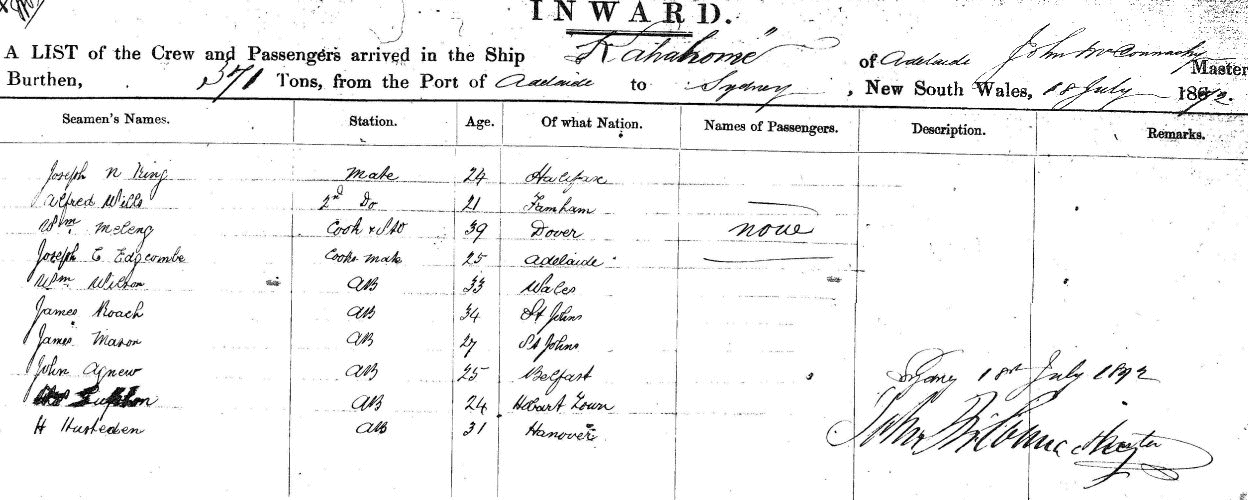 INWARD.
A LIST of the Crew and Passengers arrived in the Ship "Kahahome" of Adelaide John McConnachy Master
Burthen, 371 Tons, from the Port of Adelaide to Sydney, New South Wales, 18 July 1872.
Seamen's Names. Station. Age. Of what Nation. Names of Passengers. Description. Remarks.
Joseph N King Mate 24 Halifax
Alfred Wills 2nd Do 21 Farnham
Wm McLeng Cook & Std 39 Dover none
Joseph E Edgcombe Cooks mate 25 Adelaide
Wm Wilson AB 33 Wales
James Roach AB 34 St Johns
James Mason AB 27 St Johns
John Agnew AB 25 Belfast Sydney 18th July 1872
AB 24 Hobart Town
H Husteden AB 31 Hanover
John Master